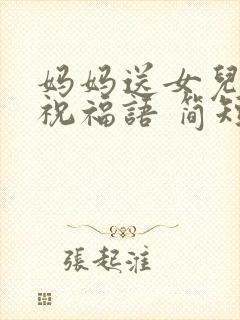 妈妈送女兒
祝福語 简短
張起淮